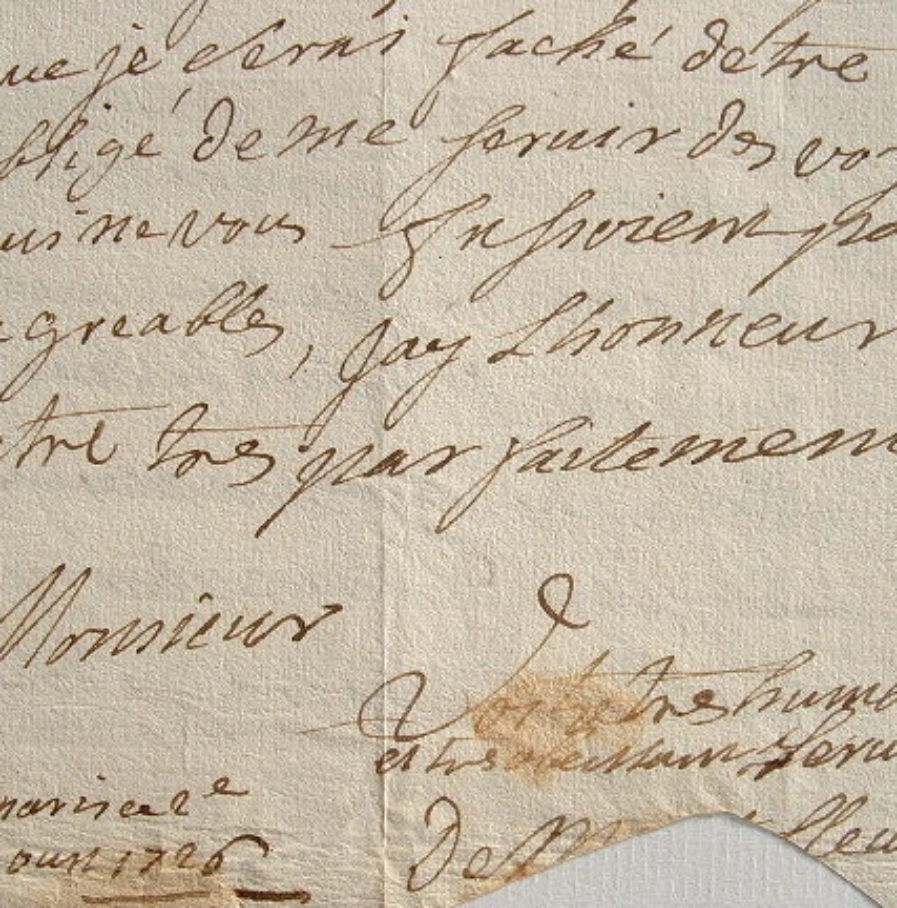 ue je serai faché detre
bligé de me servir des vo
ui ne vous fussoient pa
greables, Jay Lhonneur
tre tres parfaitement
Monsieur
Votre tres humb
et tres obeissant serui
a paris ce 2e
oust 1726
De lleu